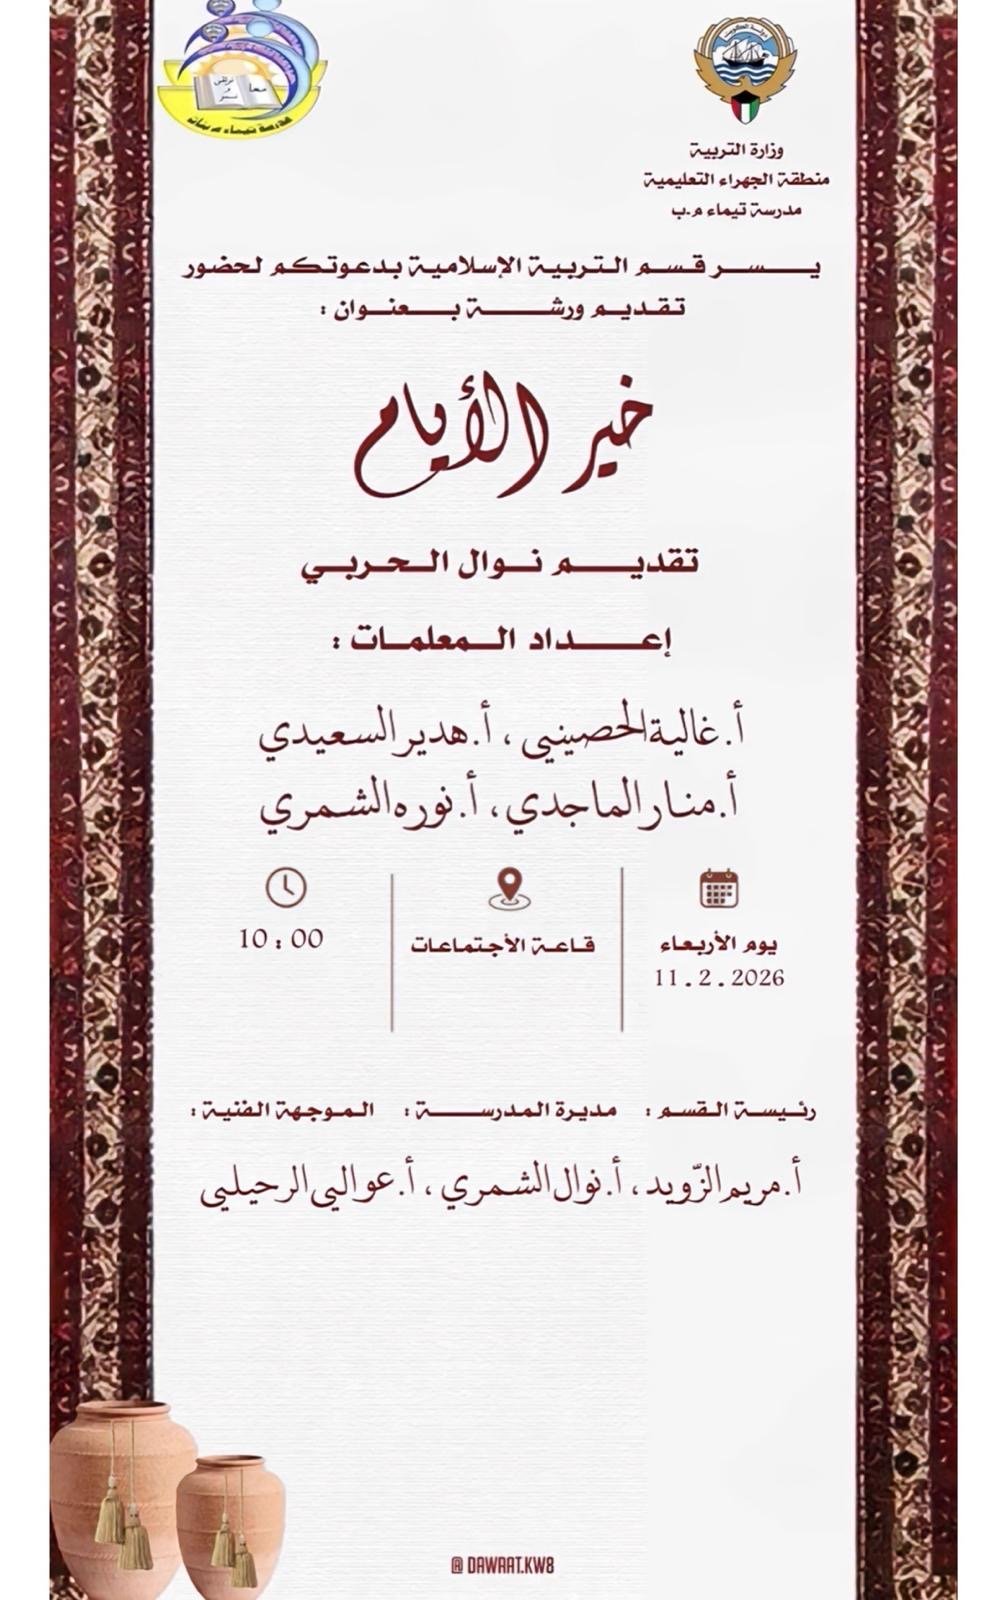 دولة الكويت
وزارة التربية
منطقة الجهراء التعليمية
مدرسة تيماء م.ب
مدرسة تيماء م بنات
معا
نرتقي
و
نستمر
يسر قسم التربية الإسلامية بدعوتكم لحضور
تقديم ورشة بعنوان :
خير الأيام
تقديم نوال الحربي
إعداد المعلمات :
أ. غالية الحصيني ، أ. هدير السعيدي
أ. منار الماجدي ، أ. نوره الشمري
يوم الأربعاء
11 . 2 . 2026
قاعة الأجتماعات
10 : 00
رئيسة القسم : مديرة المدرسة : الموجهة الفنية :
أ. مريم الزّويد ، أ. نوال الشمري ، أ. عوالي الرحيلي
@ DAWAAT.KW8